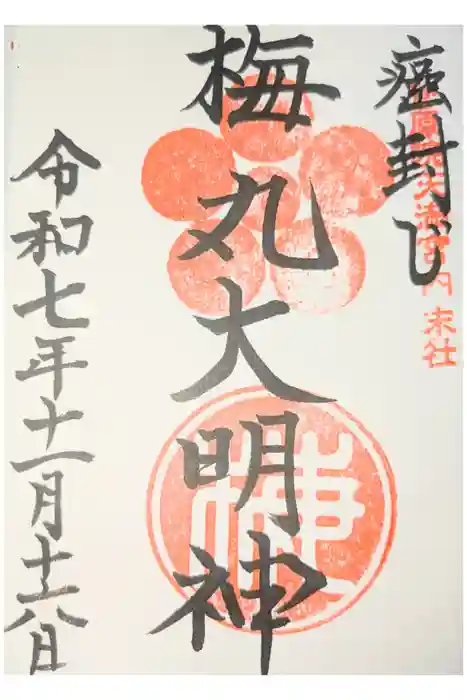 癌封じ
天満宮内 末社
梅丸大明神
令和七年十一月十六日